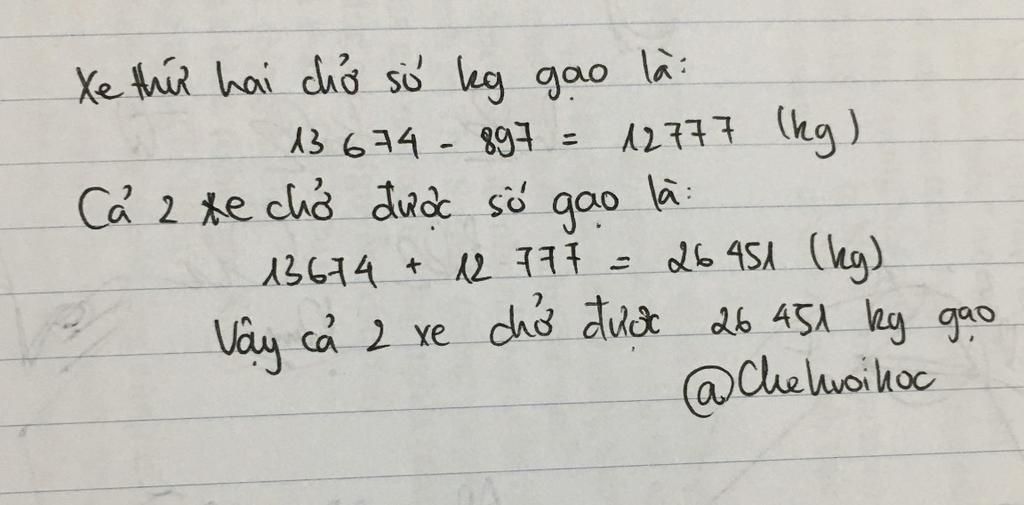 Xe thứ hai chở số kg gạo là:
13 674 - 897 = 12777 (kg)
Cả 2 xe chở được số gạo là:
13674 + 12 777 = 26 451 (kg)
Vậy cả 2 xe chở được 26 451 kg gạo
@Chehuoihoc